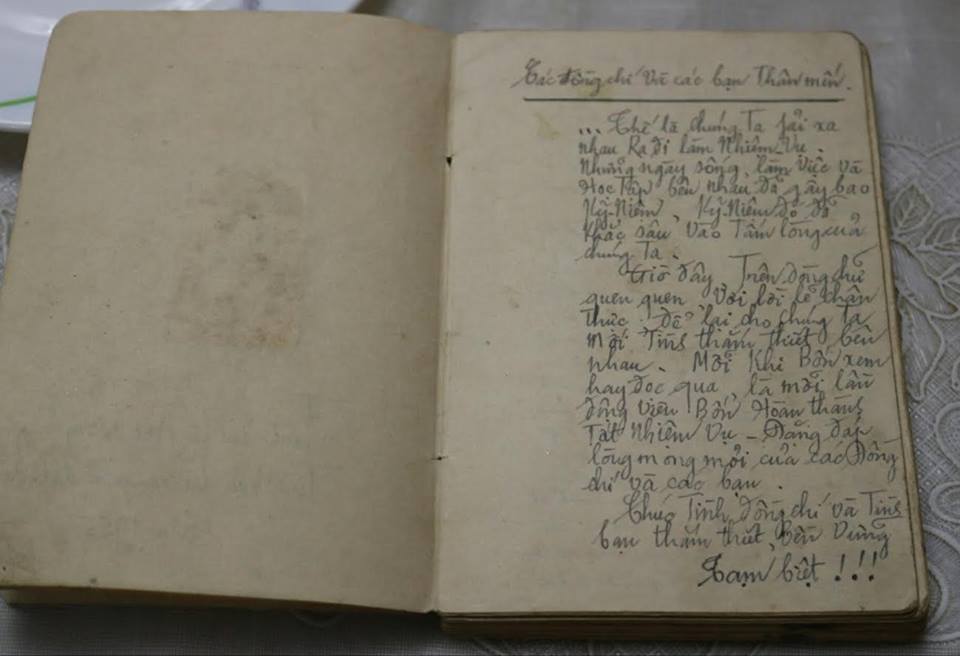 Các đồng chí Và các bạn Thân mến.
... Thế là chúng Ta fải xa
nhau Ra đi làm Nhiệm Vụ.
Những ngày sống, làm Việc và
Học Tập bên nhau đã gây bao
Kỷ-Niệm, Kỷ-Niệm đó đã
Khắc sâu Vào Tấm lòng của
chúng Ta.
Giờ đây, Trên dòng chữ
quen quen, Với lời lẽ chân
thực. Để lại cho chúng Ta
mối Tình thắm thiết bên
nhau. Mỗi Khi Bốn xem
hay đọc qua, là mỗi lần
động viên Bốn Hoàn thành
Tốt Nhiệm Vụ - Đặng đáp
lòng mong mỏi của các Đồng
chí và các bạn.
Chúc Tình đồng chí và Tình
bạn thắm thiết, Bền Vững
Tạm biệt !!!